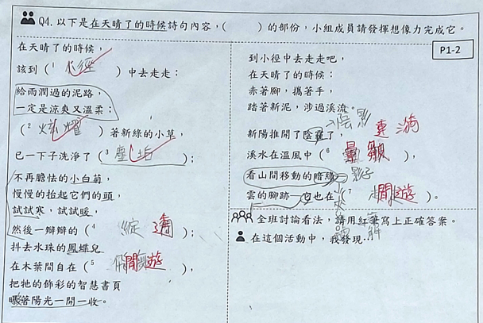 Q4. 以下是在天晴了的時候詩句內容,( )的部份,小組成員請發揮想像力完成它。
P1-2
在天晴了的時候,
該到(1 小徑)中去走走:
給雨潤過的泥路,
一定是涼爽又溫柔;
(2 炫耀)著新綠的小草,
已一下子洗淨了(3 塵垢);
不再膽怯的小白菊,
慢慢的抬起它們的頭,
試試寒,試試暖,
然後一瓣瓣的(4 綻 透);
抖去水珠的鳳蝶兒
在木葉間自在(5 閒遊),
把牠的飾彩的智慧書頁
曬著陽光一開一收。
到小徑中去走走吧,
在天晴了的時候:
赤著腳,攜著手,
踏著新泥,涉過溪流。
新陽推開了陰霾了,
溪水在溫風中(6 暈皺),
看山間移動的暗綠
雲的腳跡 它也在( 閒遊)。
全班討論看法,請用紅筆寫上正確答案。
在這個活動中,我發現…